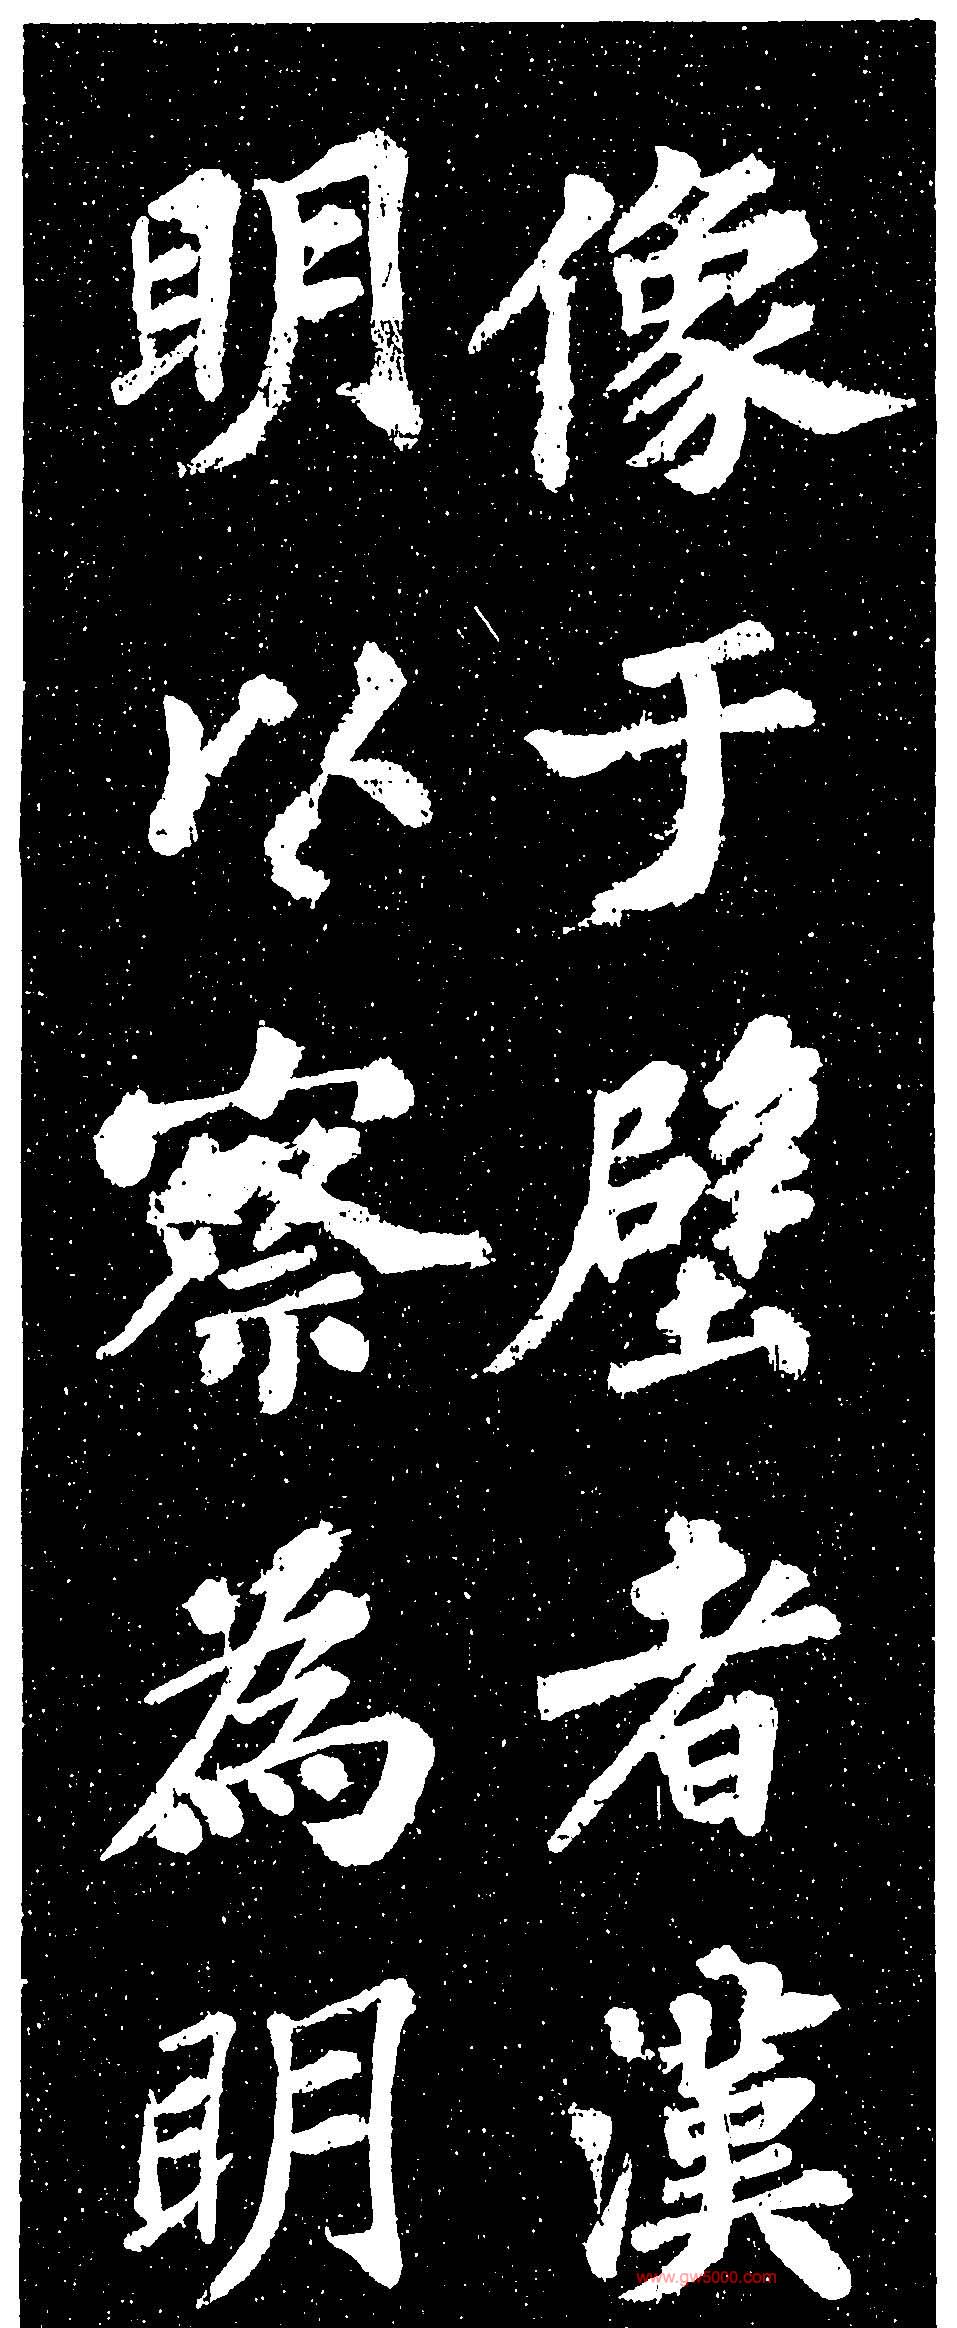 像于壁者漢
明以察為明
www.gw5000.com